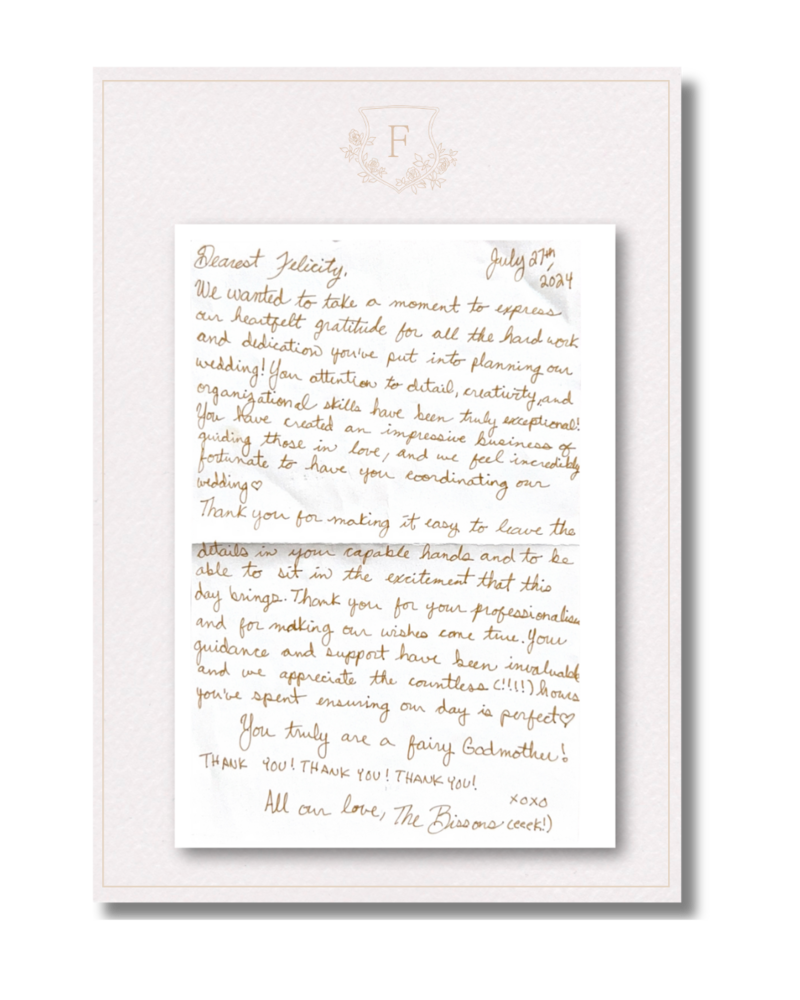 F
Dearest Felicity,
July 27th,
2024
We wanted to take a moment to express
our heartfelt gratitude for all the hard work
and dedication you've put into planning our
wedding! Your attention to detail, creativity, and
organizational skills have been truly exceptional!
You have created an impressive business of
guiding those in love, and we feel incredibly
fortunate to have you coordinating our
wedding♡
Thank you for making it easy to leave the
details in your capable hands and to be
able to sit in the excitement that this
day brings. Thank you for your professionalism
and for making our wishes come true. Your
guidance and support have been invaluable
and we appreciate the countless (!!!!) hours
you've spent ensuring our day is perfect♡
You truly are a fairy Godmother!
THANK YOU! THANK YOU! THANK YOU!
xoxo
All our love, The Bissons (eeek!)